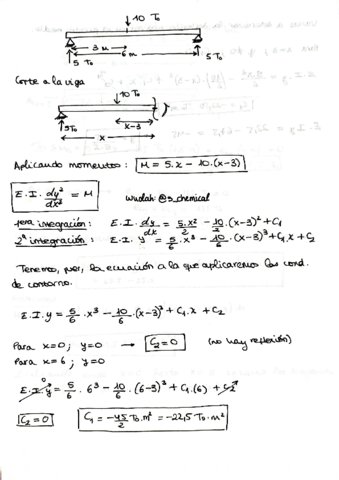 10 To
3 m
6 m
5 To
5 To
Corte a la viga
10 To
5To
x-3
x
Aplicando momentos: M = 5.x - 10.(x-3)
E.I. dy²/dx² = M
wuolah: @s_chemical
1era integración: E.I. dy/dx = 5.x²/2 - 10/2.(x-3)² + C1
2ª integración: E.I. y = 5/6.x³ - 10/6.(x-3)³ + C1.x + C2
Tenemos, pues, la ecuación a la que aplicaremos las cond.
de contorno.
E.I.y = 5/6.x³ - 10/6.(x-3)³ + C1.x + C2
Para x=0; y=0 → C2=0 (no hay
Para x=6; y=0
E.I.y = 5/6.6³ - 10/6.(6-3)³ + C1.(6) + C2
0
C2=0
C1 = -45/2 To.m² = -22,5 To.m²